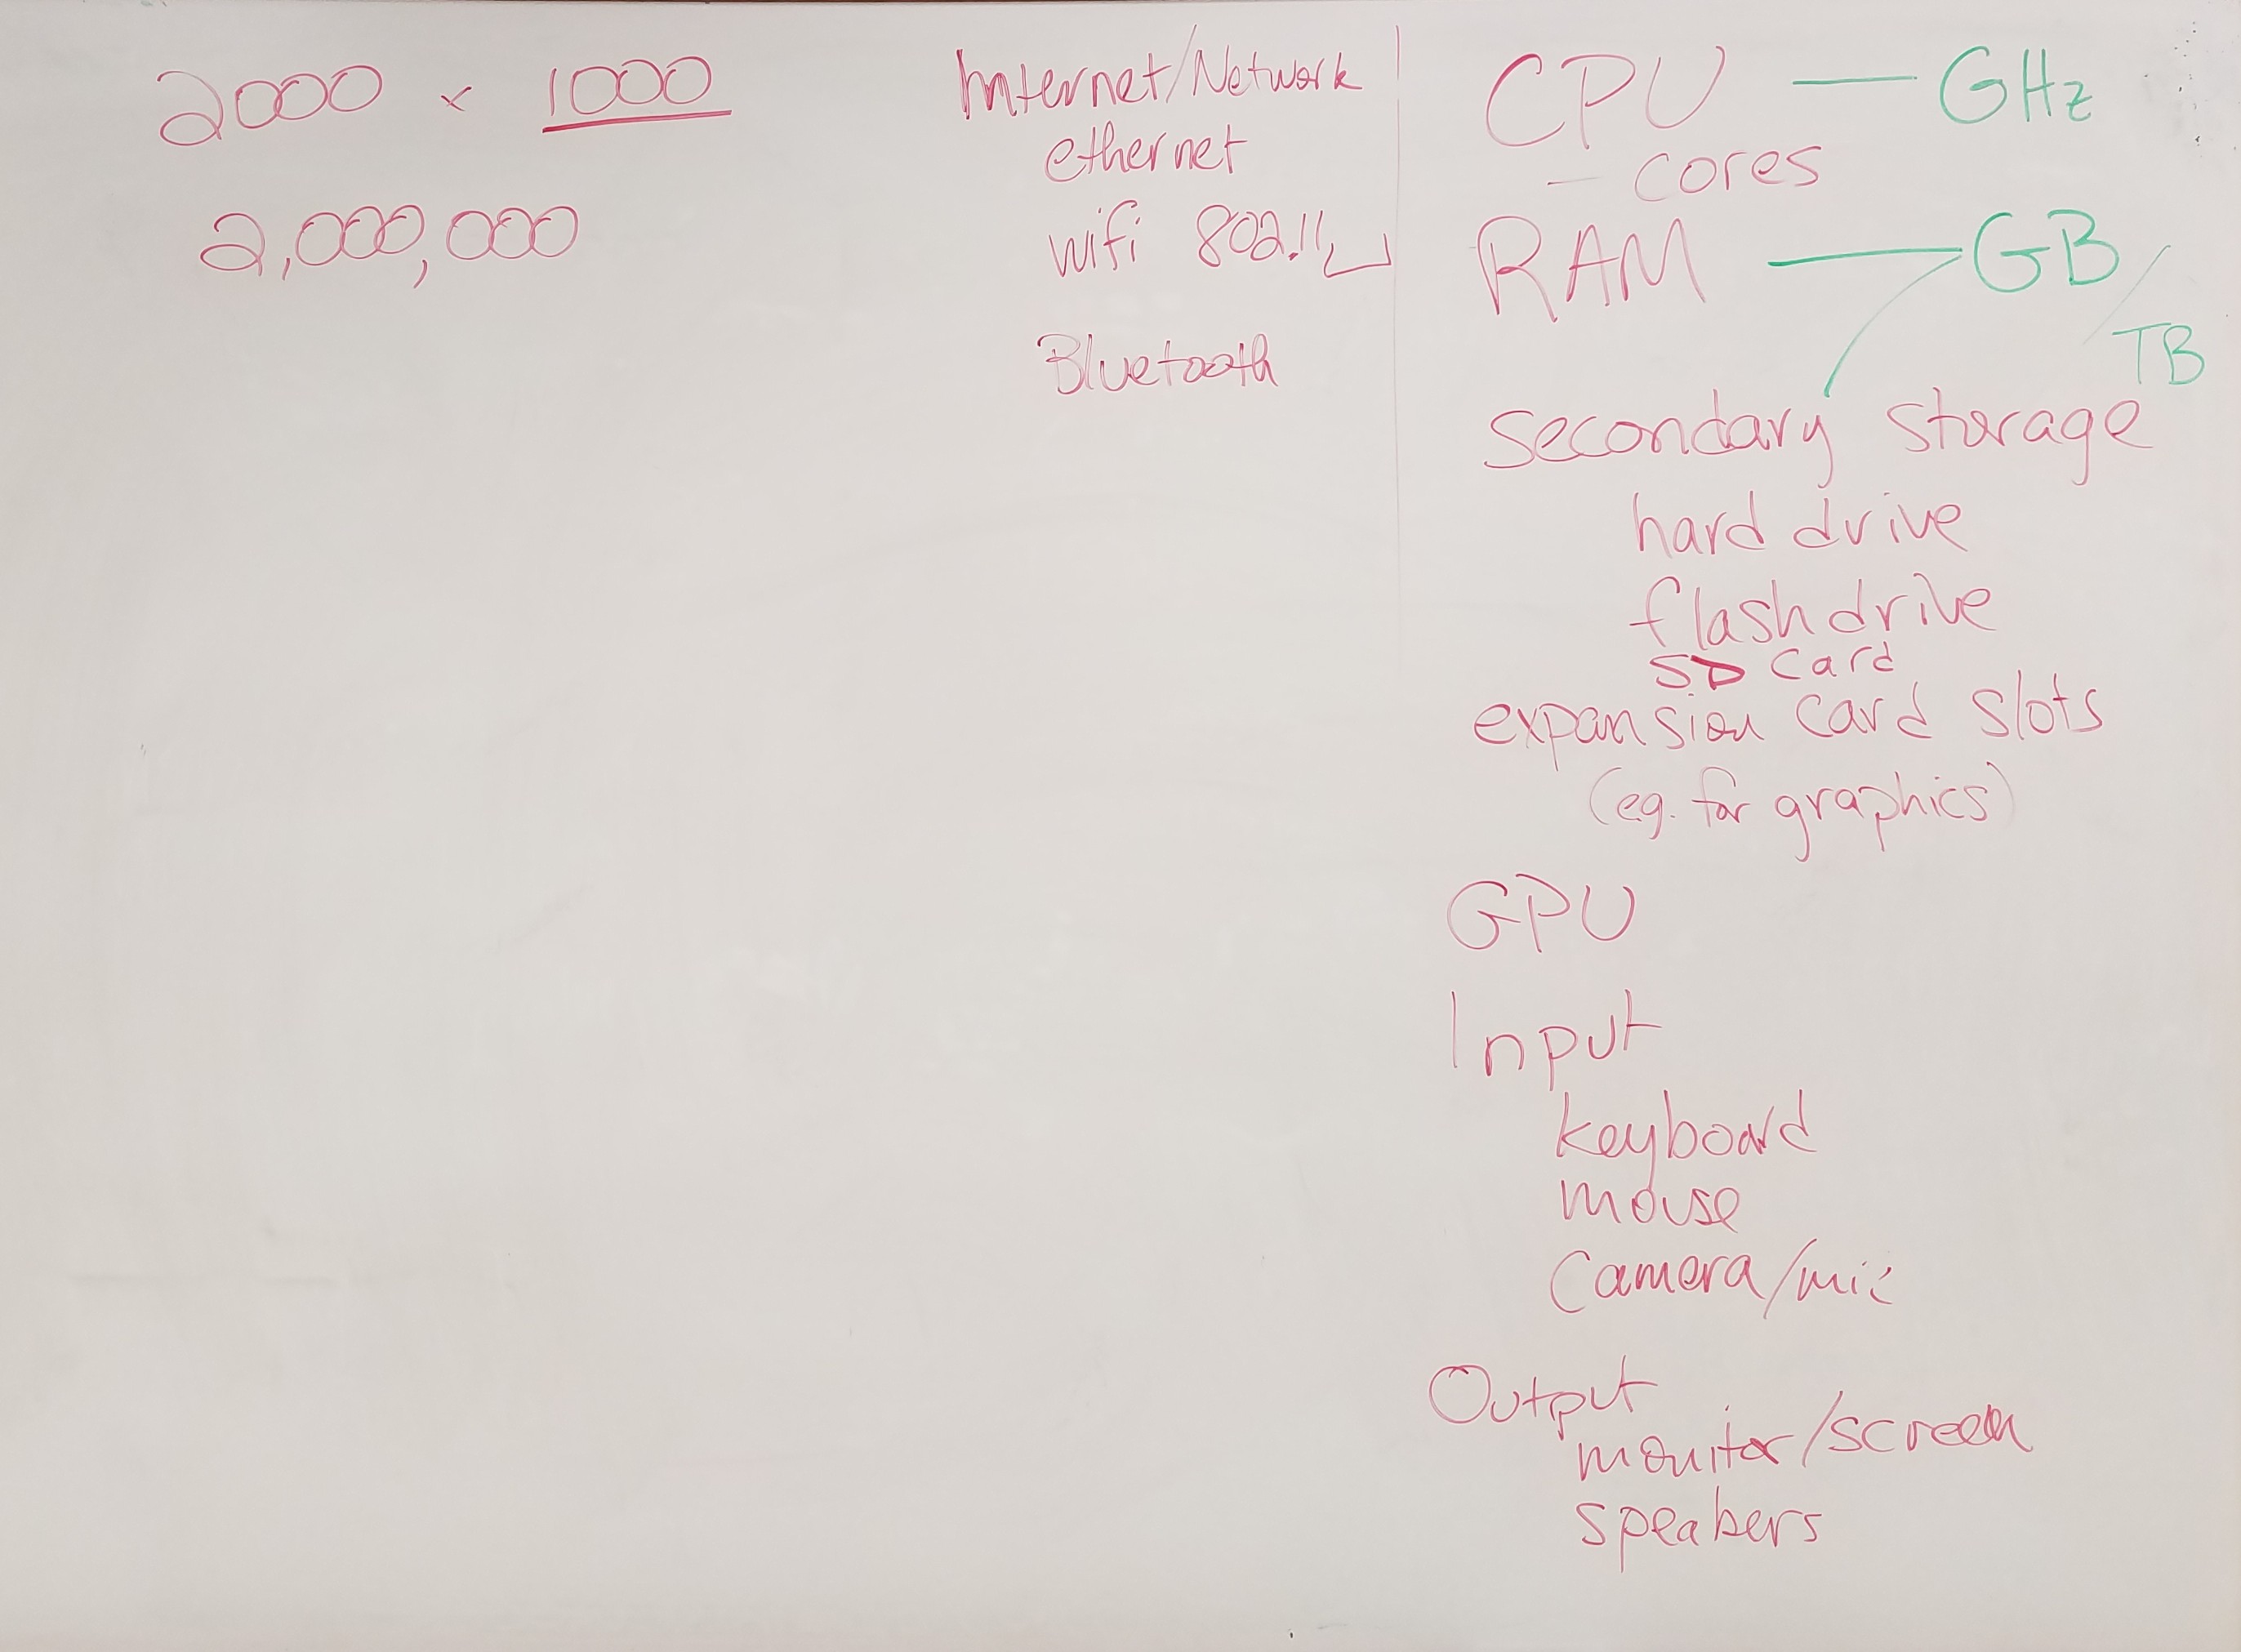 2000 x 1000
2,000,000
Internet/Network
ethernet
wifi 802.11
Bluetooth
CPU — GHz
- cores
RAM — GB/
TB
secondary storage
hard drive
flash drive
SD card
expansion card slots
(eg. for graphics)
GPU
Input
keyboard
mouse
camera/mic
Output
monitor/screen
speakers